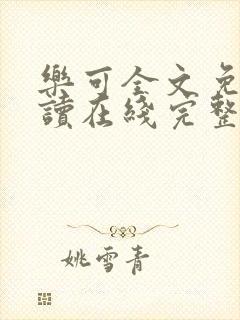 樂可全文免
讀在綫完整
姚雪青